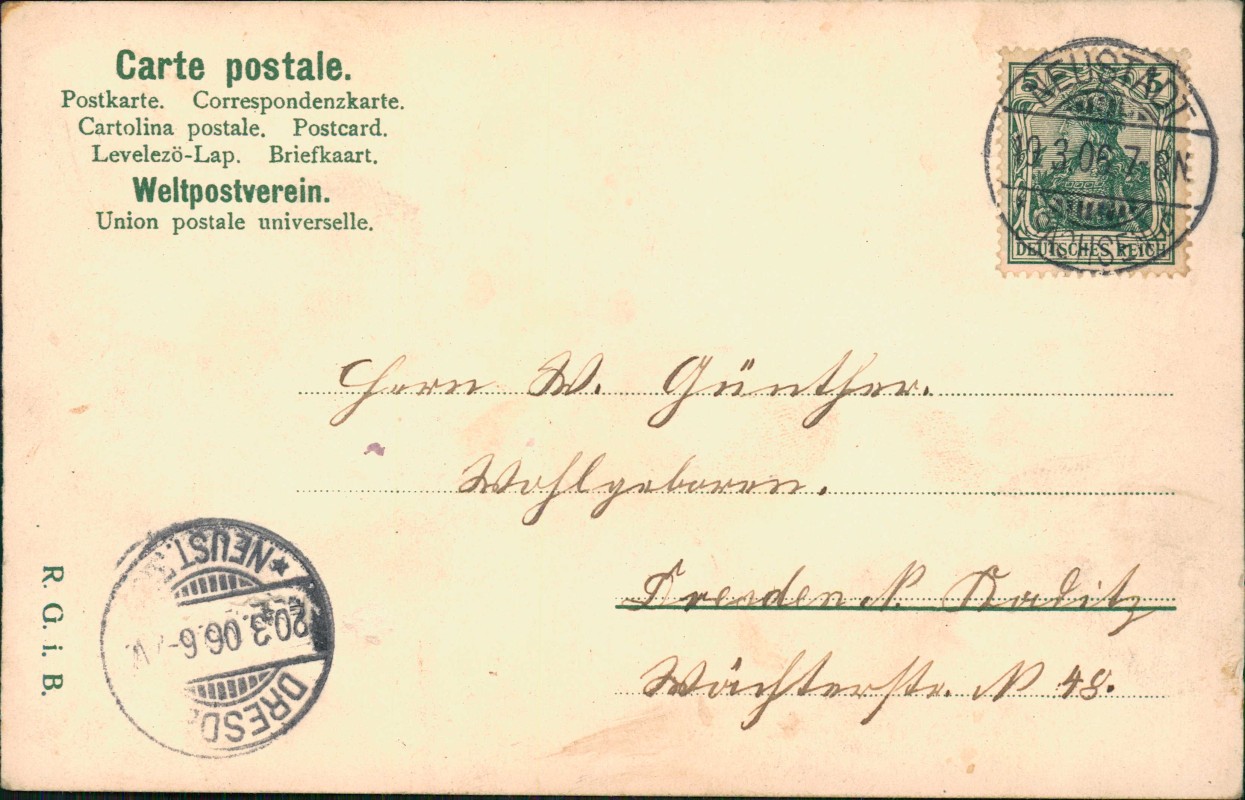 Carte postale.
Postkarte. Correspondenzkarte.
Cartolina postale. Postcard.
Levelező-Lap. Briefkaart.
Weltpostverein.
Union postale universelle.
5 5
NEUSTADT
19.3.06.7-8N
SACHSEN
DEUTSCHES REICH
Herrn W. Günther.
Wohlgeboren.
Dresden N. Kaditz
Wächterstr. N 48.
*NEUST.
20.3.06.6-7V.
DRESD
R. G. i. B.